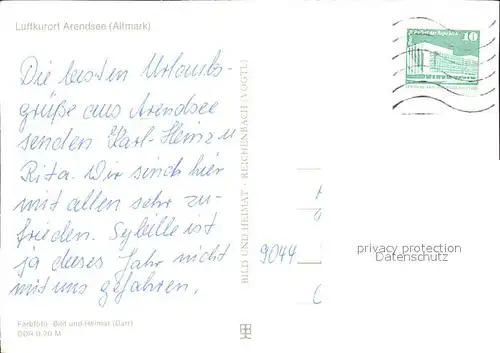 Luftkurort Arendsee (Altmark)
Die besten Urlaubs-
grüße aus Arendsee
senden Karl-Heinz u
Rita. Wir sind hier
mit allen sehr zu-
frieden. Sybille ist
ja dieses Jahr nicht
mit uns gefahren.
Farbfoto: Bild und Heimat (Darr)
DDR 0,20 M
BILD UND HEIMAT · REICHENBACH (VOGTL)
10
9044
privacy protection
Datenschutz